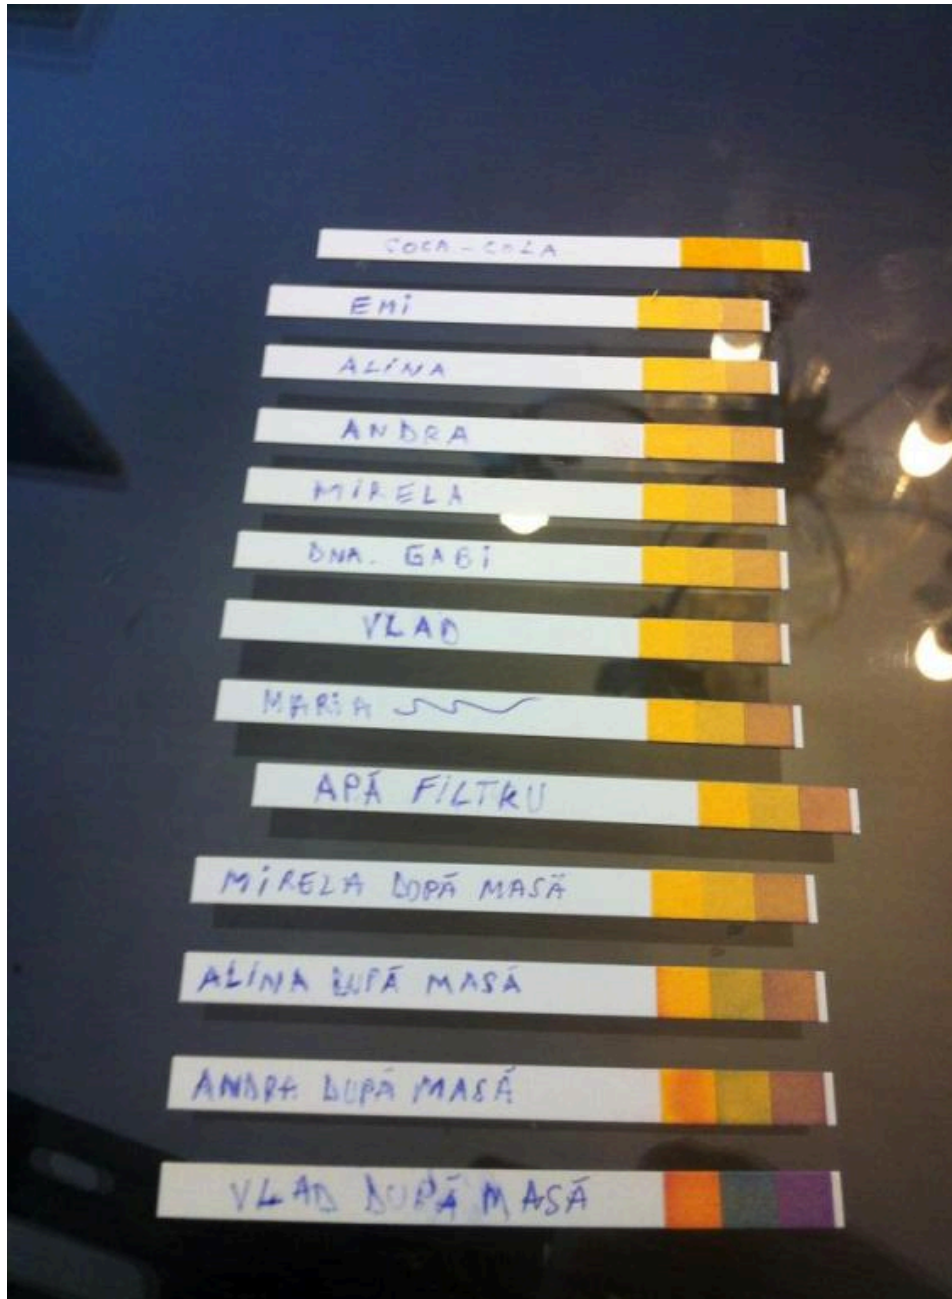 COCA-COLA
EMi
ALiNA
ANDRA
MiRELA
DNA. GABi
VLAD
MARiA
APĂ FiLTRU
MiRELA DUPĂ MASĂ
ALiNA DUPĂ MASĂ
ANDRA DUPĂ MASĂ
VLAD DUPĂ MASĂ